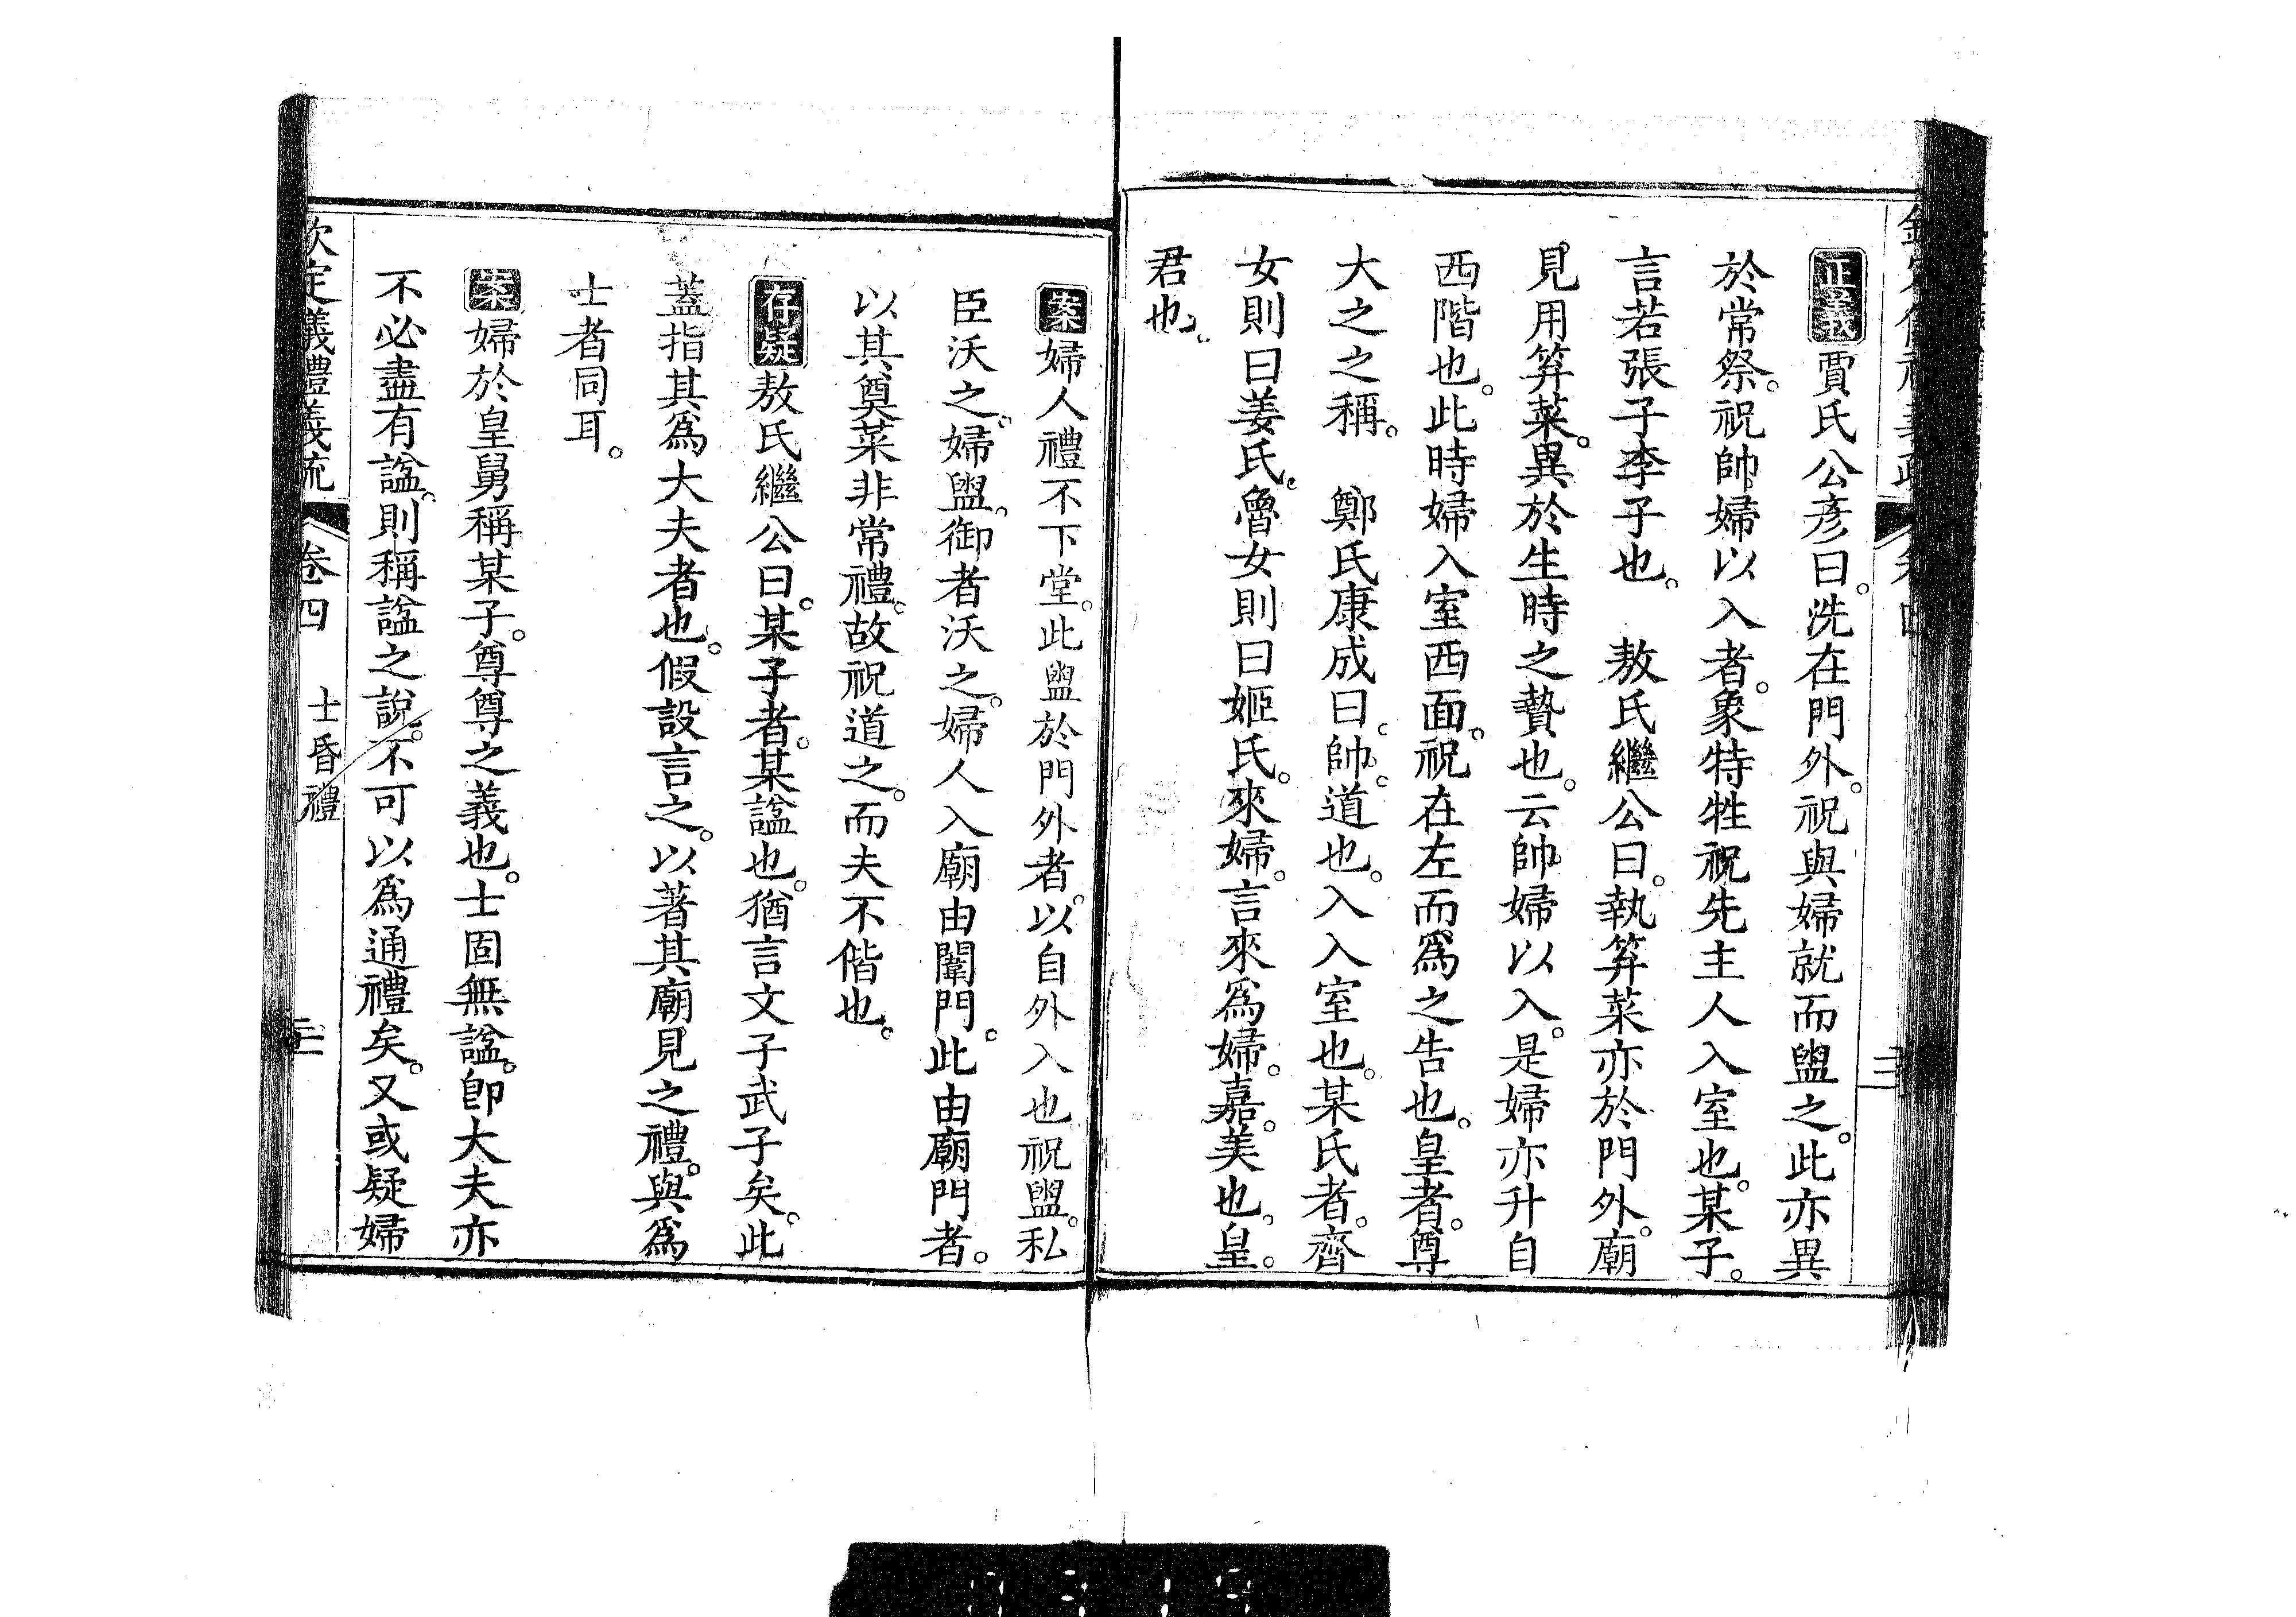 正義賈氏公彥曰。洗在門外。祝與婦就而盥之。此亦異
於常祭。祝帥婦以入者。象特牲祝先主人入室也。某子。
言若張子李子也。　敖氏繼公曰。執笲菜亦於門外。廟
見用笲菜。異於生時之贄也。云帥婦以入。是婦亦升自
西階也。此時婦入室西面。祝在左而爲之告也。皇者。尊
大之之稱。　鄭氏康成曰。帥。道也。入。入室也。某氏者。齊
女則曰姜氏。魯女則曰姬氏。來婦。言來爲婦。嘉。美也。皇。
君也。
案婦人禮不下堂。此盥於門外者。以自外入也祝盥。私
臣沃之。婦盥。御者沃之。婦人入廟由闈門。此由廟門者。
以其奠菜非常禮。故祝道之。而夫不偕也。
存疑敖氏繼公曰。某子者。某諡也。猶言文子武子矣。此
蓋指其爲大夫者也。假設言之。以著其廟見之禮。與爲
士者同耳。
案婦於皇舅稱某子。尊尊之義也。士固無諡。卽大夫亦
不必盡有諡。則稱諡之說。不可以爲通禮矣。又或疑婦
欽定儀禮義疏　卷四　士昏禮